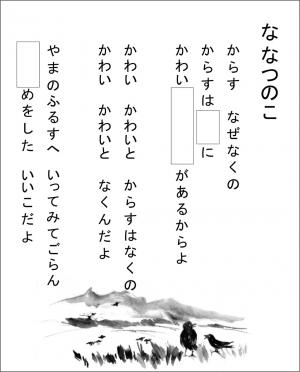 ななつのこ
からす なぜなくの
からすは に
かわい があるからよ
かわい かわいと からすはなくの
かわい かわいと なくんだよ
やまのふるすへ いってみてごらん
めをした いいこだよ